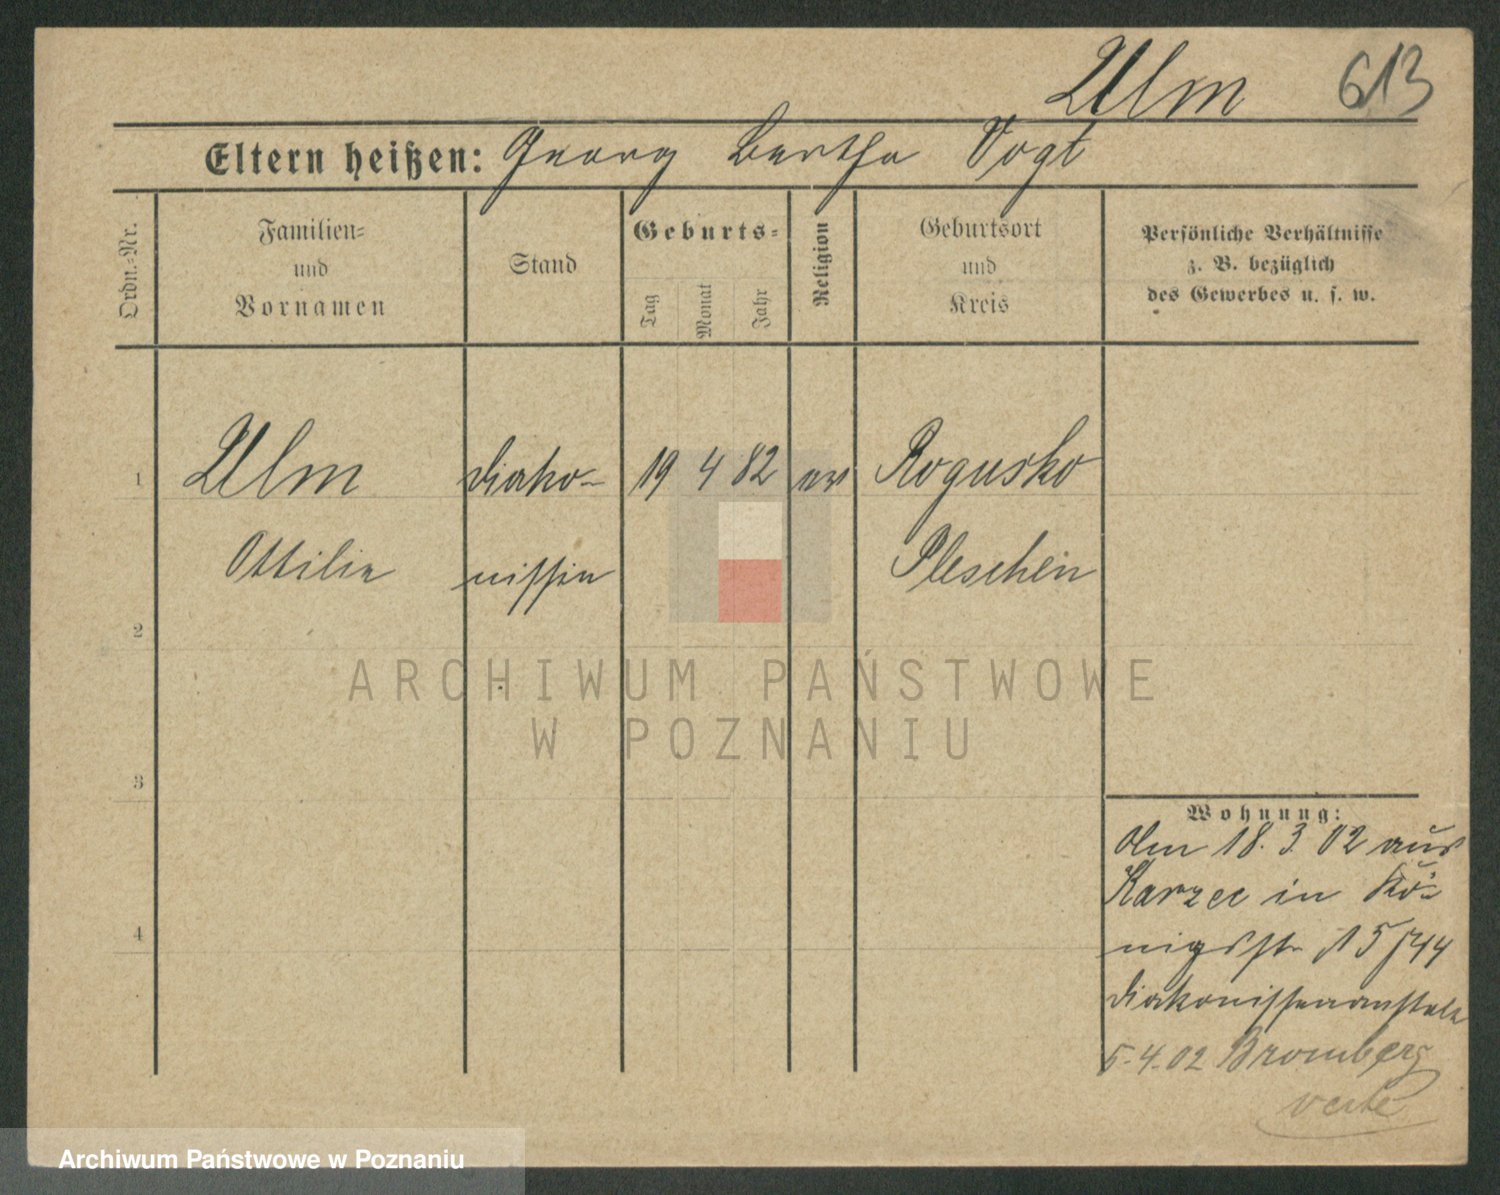 Ulm 613
Eltern heißen: Georg Bertha Vogt
Ordn.-Nr.
Familien-
und
Vornamen
Stand
Geburts-
Tag
Monat
Jahr
Religion
Geburtsort
und
Kreis
Persönliche Verhältnisse
z. B. bezüglich
des Gewerbes u. s. w.
1 Ulm Diako- 19 4 82 ev Rogusko
Ottilie nissin Pleschen
2
ARCHIWUM PAŃSTWOWE
W POZNANIU
3
Wohnung:
Am 18. 3. 02 aus
Karzec in Kö-
4
nigsstr 15/44
Diakonissenanstalt
5.4.02 Bromberg
verte
Archiwum Państwowe w Poznaniu